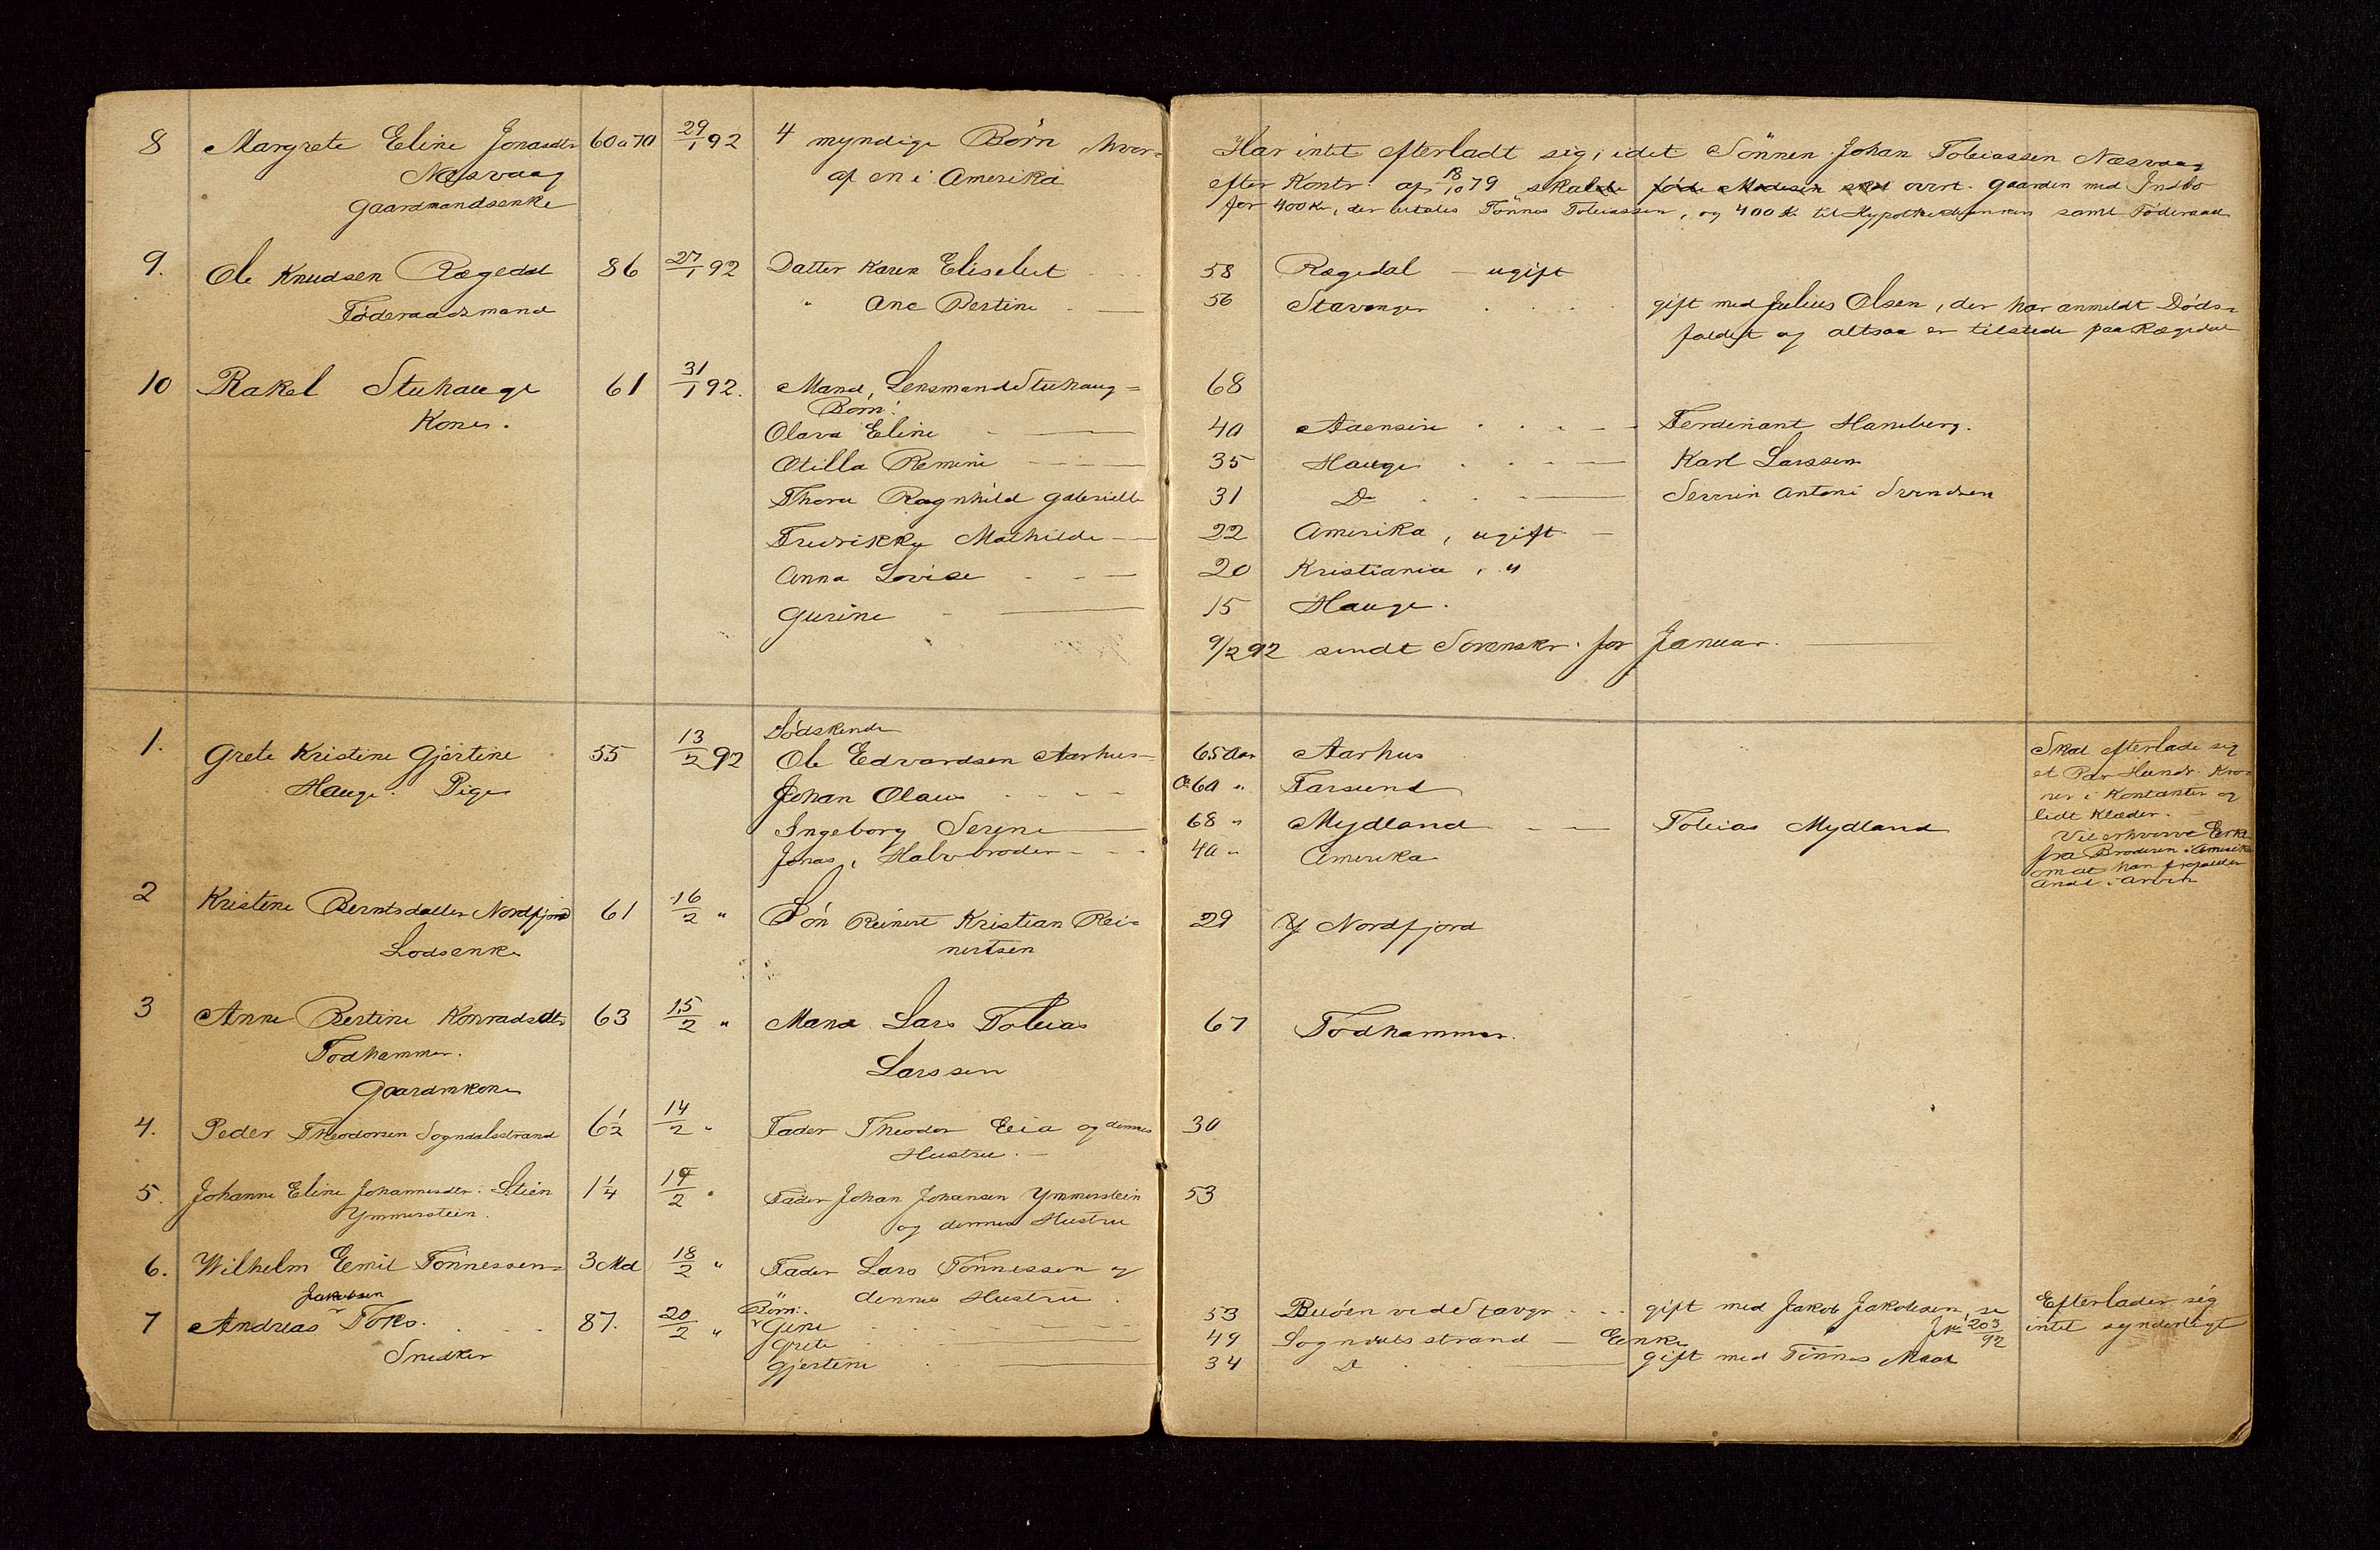 8 Margrete Eline Jonasdtr 60 a 70 29/1 92 4 myndige Börn, hvor=
Næsvaag af en i Amerika
Gaardmandsenke
Har intet efterladt sig, idet Sönnen Johan Tobiassen Næsvaag
efter Kontr. af 18/10 79 skulde föde Moderen skal overt. Gaarden med Indbo
for 400 Kr, der betales Tönnes Tobiassen, og 400 Kr til Hypothekbanken samt Föderaad
9. Ole Knudsen Rægedal 86 27/1 92 Datter Karen Elisebet 58 Rægedal - ugift
Föderaadsmand " Ane Bertine 56 Stavanger gift med Julius Olsen, der har anmeldt Döds=
faldet og altsaa er tilstede paa Rægedal
10 Rakel Stuhauge 61 31/1 92. Mand, Lensmand Stuhaug= 68
Kone. Börn:
Olava Eline 40 Aaensire Ferdinant Haneberg.
Otilla Remine 35 Hauge Karl Larssen
Thora Ragnhild Gabrielle 31 Do Servin Antoni Svendsen
Fredrikke Mathilde 22 Amerika, ugift -
Anna Lovise 20 Kristiania, "
Gurine 15 Hauge.
9/2 92 sendt Sorenskr. for Januar.
1. Grete Kristine Gjertine 55 13/2 92 Södskende
Hauge. Pige Ole Edvardsen Aarhus= 65 Aar Aarhus
Johan Olaus Ca 60 " Farsund
Ingeborg Serine 68 " Mydland Tobias Mydland
Jonas, Halvbroder 40 " Amerika
Skal efterlade sig
et Par Hundr. Kro=
ner i Kontanter og
lidt Klæder.
Vil erhverve Erkl.
fra Broderen i Amerika
om at han frafalder
Andel i Arven
2 Kristine Berntsdatter Nordfjord 61 16/2 " Sön Reinert Kristian Rei= 29 Y Nordfjord
Lodsenke nertsen
3 Anne Bertine Konradsdtr 63 15/2 " Mand Lars Tobias 67 Fodhammer.
Fodhammer. Larssen
Gaardmkone
4. Peder Theodorsen Sogndalsstrand 6 1/2 14/2 " Fader Theodor Eia og dennes 30
Hustru.
5. Johanne Eline Johannesdtr. Stien 1 1/4 19/2 " Fader Johan Johansen Ymmerstein 53
Ymmerstein. og dennes Hustru
6. Wilhelm Emil Tönnessen 3 Md 18/2 " Fader Lars Tönnessen og
dennes Hustru.
Jakobsen
7 Andreas Foks. 87. 20/2 " Börn:
Snedker Gine 53 Buöen ved Stavgr gift med Jakob Jakobsen, se
Jk 203/92
Grete 49 Sogndalsstrand - Enke
Gjertine 34 Do gift med Tönnes Maal
Efterlader sig
intet synderligt